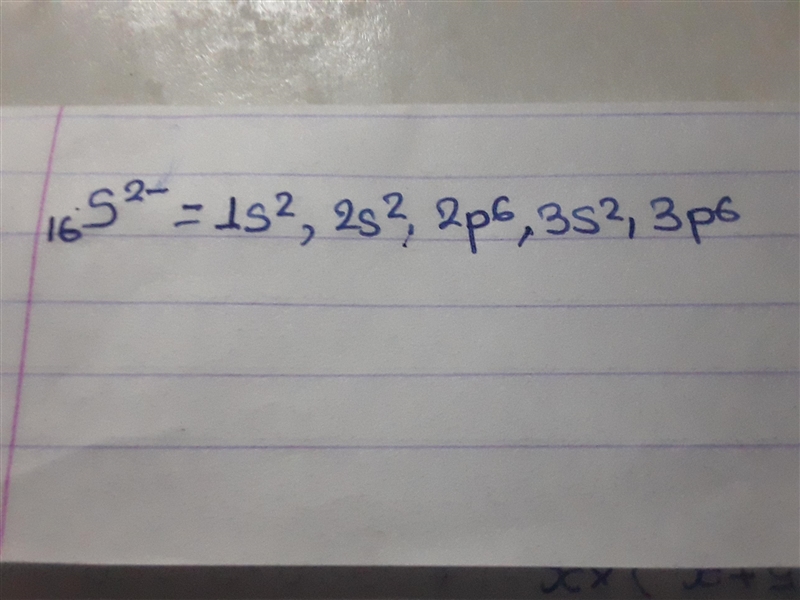 ₁₆S²⁻ = 1s², 2s², 2p⁶, 3s², 3p⁶